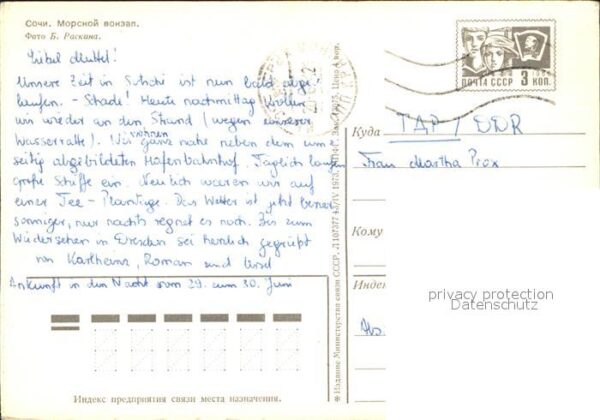 Сочи. Морской вокзал.
Фото Б. Раскина.
ПОЧТА СССР 3 КОП.
1966
Liebe Mutti!
Unsere Zeit in Sotschi ist nun bald abge-
laufen. - Schade! Heute nachmittag wollen
wir wieder an den Strand (wegen unserer
Wasserratte). Wir wohnen ganz nahe neben dem um-
seitig abgebildeten Hafenbahnhof. Täglich laufen
große Schiffe ein. Neulich waren wir auf
einer Tee-Plantage. Das Wetter ist jetzt besser
sonniger, nur nachts regnet es noch. Bis zum
Wiedersehen in Dresden sei herzlich gegrüßt
von Karlheinz, Roman und
Ankunft in der Nacht vom 29. zum 30. Juni
Индекс предприятия связи места назначения.
* Издание Министерства связи СССР. Цена 4 коп.
Куда ГДР / DDR
Frau Martha Prox
Кому
Индекс
privacy protection
Datenschutz